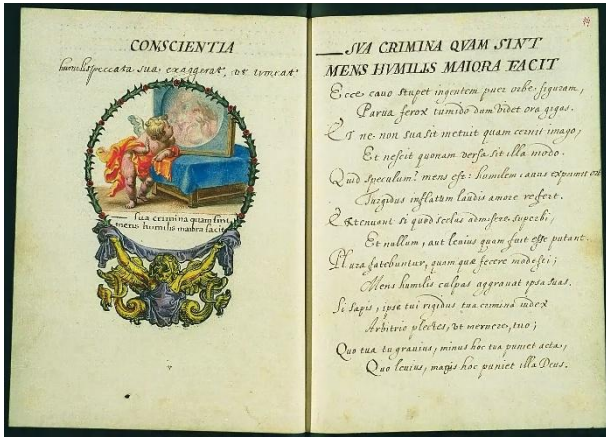 CONSCIENTIA
humilis peccata sua exaggerat, ut timeat
sua crimina quam sint
mens humilis maiora facit
SVA CRIMINA QVAM SINT
MENS HVMILIS MAIORA FACIT
Ecce cavo stupet ingentem puer orbe figuram,
Parva ferox tumido dum videt ora gigas.
Et ne non sua sit metuit quam cernis imago,
Et nescit quonam versa sit illa modo.
Quid speculum? mens est: humilem cavus exprimit
Turgidus inflatum laudis amore refert.
Extenuant si quod scelus admisere superbi,
Et nullum, aut levius quam fuit esse putant.
Plura fatebuntur, quam quae fecere modesti;
Mens humilis culpas aggravat ipsa suas.
Si sapis, ipse tui rigidus tua crimina iudex
Arbitrio plectes, ut meruere, tuo;
Quo tua tu gravius, minus hoc tua puniet acta,
Quo levius, magis hoc puniet illa Deus.